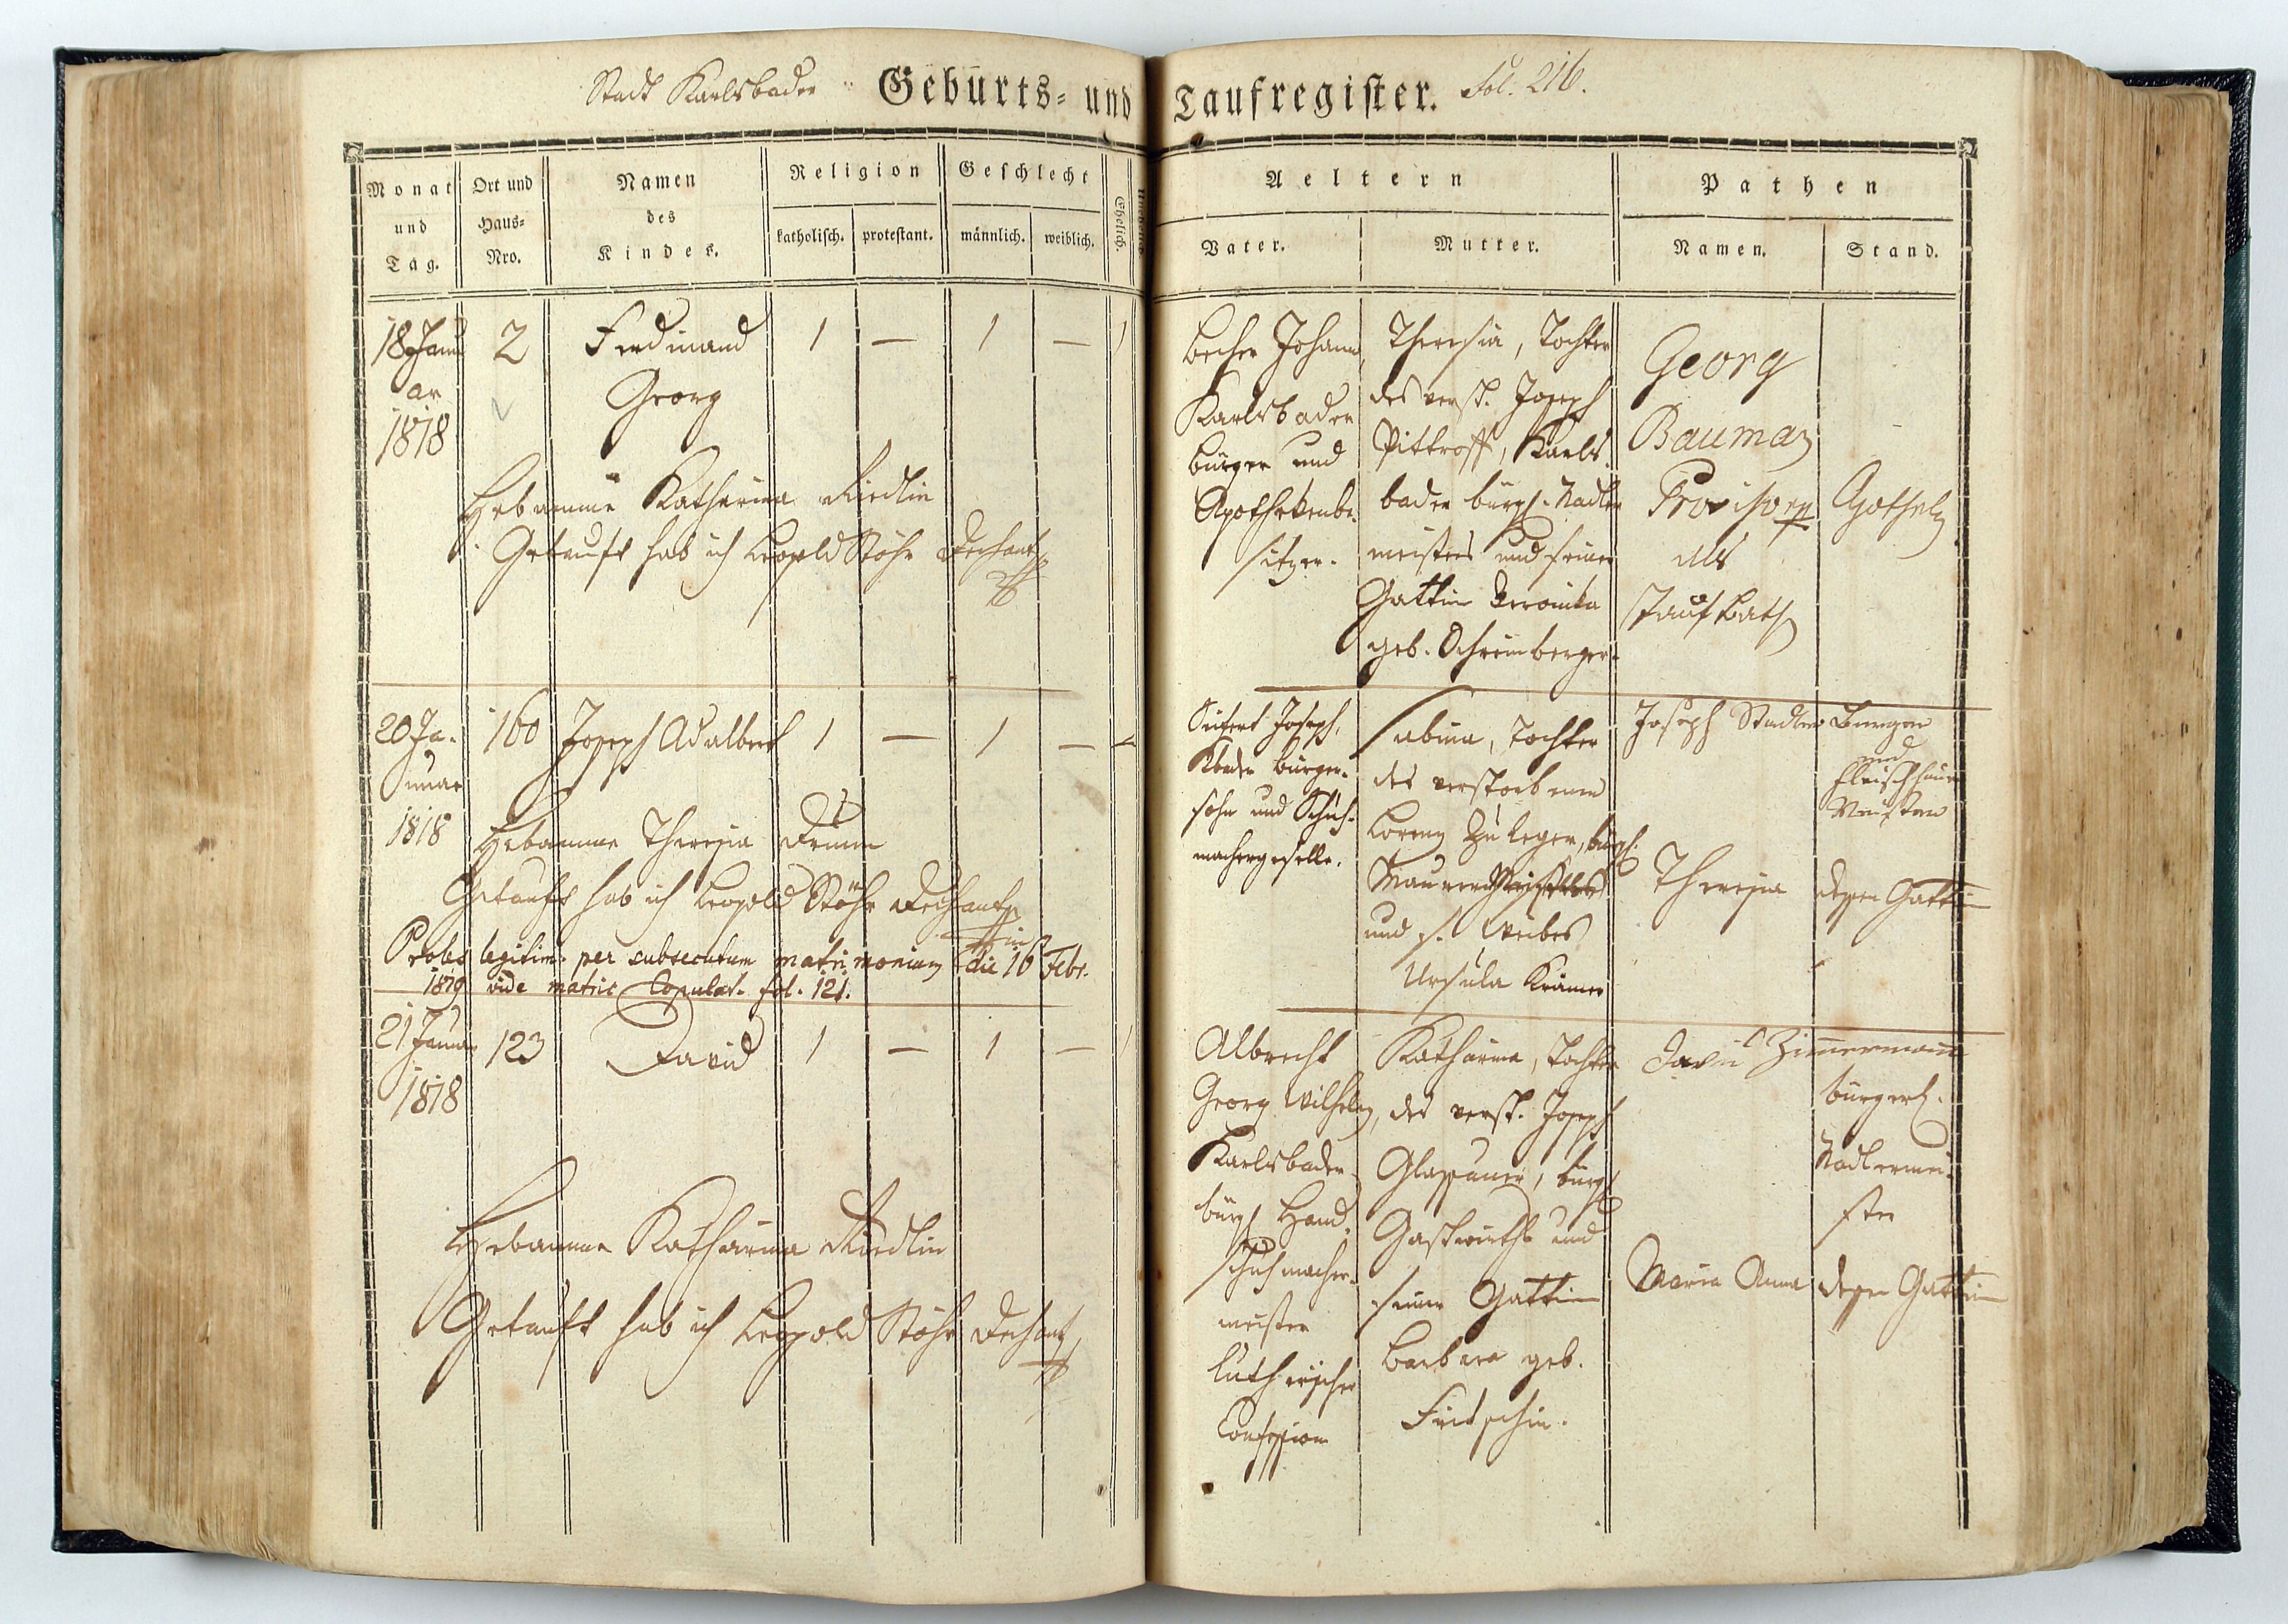 Stadt Karlsbader Geburts- und Taufregister. Fol. 216.
Monat und Tag.
Ort und Haus-Nro.
Namen des Kindes.
Religion
katholisch. protestant.
Geschlecht
männlich. weiblich.
Ehelich.
Unehelich.
Aeltern
Vater. Mutter.
Pathen
Namen. Stand.
18 Janu
ar
1818
2
Ferdinand
Georg
1 — 1 — 1
Hebamme Katharina Riedlin
Getauft hab ich Leopold Stöhr Dechant
Becher Johann
Karlsbader
bürger und
Apothekenbe-
sitzer.
Theresia, Tochter
des verst. Joseph
Pittroff, Karls-
bader bürgl. Nadler
meisters und seiner
Gattin Veronika
geb.
Georg
Bauman
Provisor
als
Taufpath
20 Ja-
nuar
1818
160
Joseph Adalbert
1 — 1 — —
Hebamme Theresia
Getauft hab ich Leopold Stöhr Dechant
Proles legitim. per subsecutum matrimonium die 16 Febr.
1819 vide matric Copulat. fol. 121.
Seifert Joseph,
Kbader bürger-
sohn und Schuh-
machergeselle.
Sabina, Tochter
des verstorbenen
Lorenz Zuleger, bürgl.
Maurer
und s. Weibes
Ursula Krämer
Joseph Stadler
Bürger
und
Fleischhauer
Meister
Theresia
dessen Gattin
21 Januar
1818
123
David
1 — 1 — 1
Hebamme Katharina Riedlin
Getauft hab ich Leopold Stöhr Dechant
Albrecht
Georg Wilhelm,
Karlsbader
bürgl. Hand-
schuhmacher-
meister
lutherischer
Confession
Katharina, Tochter
des verst. Joseph
bürgl.
Gastwirths und
seiner Gattin
Barbara geb.
David Zimmermann
bürgerl.
Nadlermei-
ster
Maria Anna
dessen Gattin